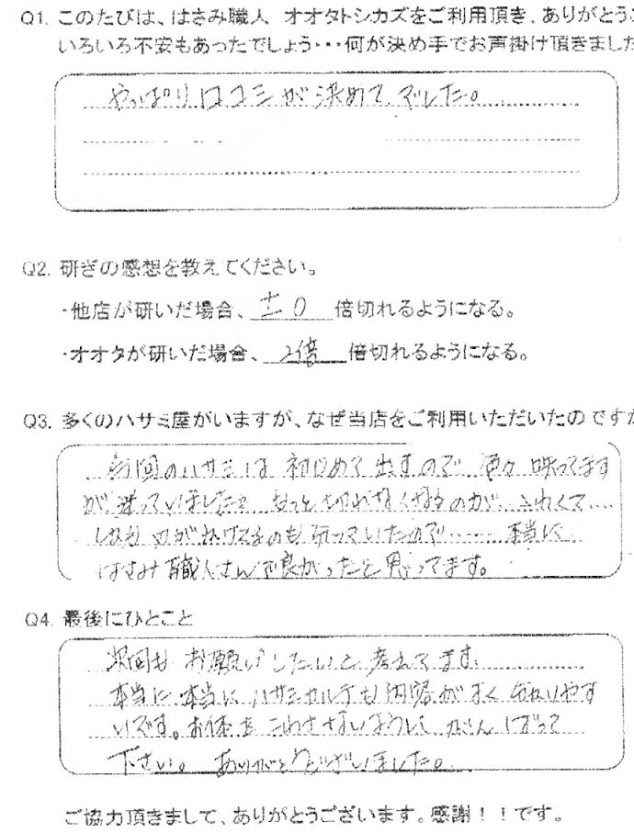 Q1. このたびは、はさみ職人 オオタトシカズをご利用頂き、ありがとう
いろいろ不安もあったでしょう・・・何が決め手でお声掛け頂きました
やっぱり口コミが決めてでした。
Q2. 研ぎの感想を教えてください。
・他店が研いだ場合、±0倍切れるようになる。
・オオタが研いだ場合、2倍倍切れるようになる。
Q3. 多くのハサミ屋がいますが、なぜ当店をご利用いただいたのですか
今回のハサミは初めて出すので
が迷っていましたが もっと切れなくなるのが
しかも刃がかけてるのも いたので 本当に
はさみ職人さんで良かったと思ってます。
Q4. 最後にひとこと
次回もお願いしたいと考えてます。
本当に本当にハサミカルテも内容がすぐ分かりやす
いです。お体をこわさないようにがんばって
下さい。ありがとうございました。
ご協力頂きまして、ありがとうございます。感謝！！です。